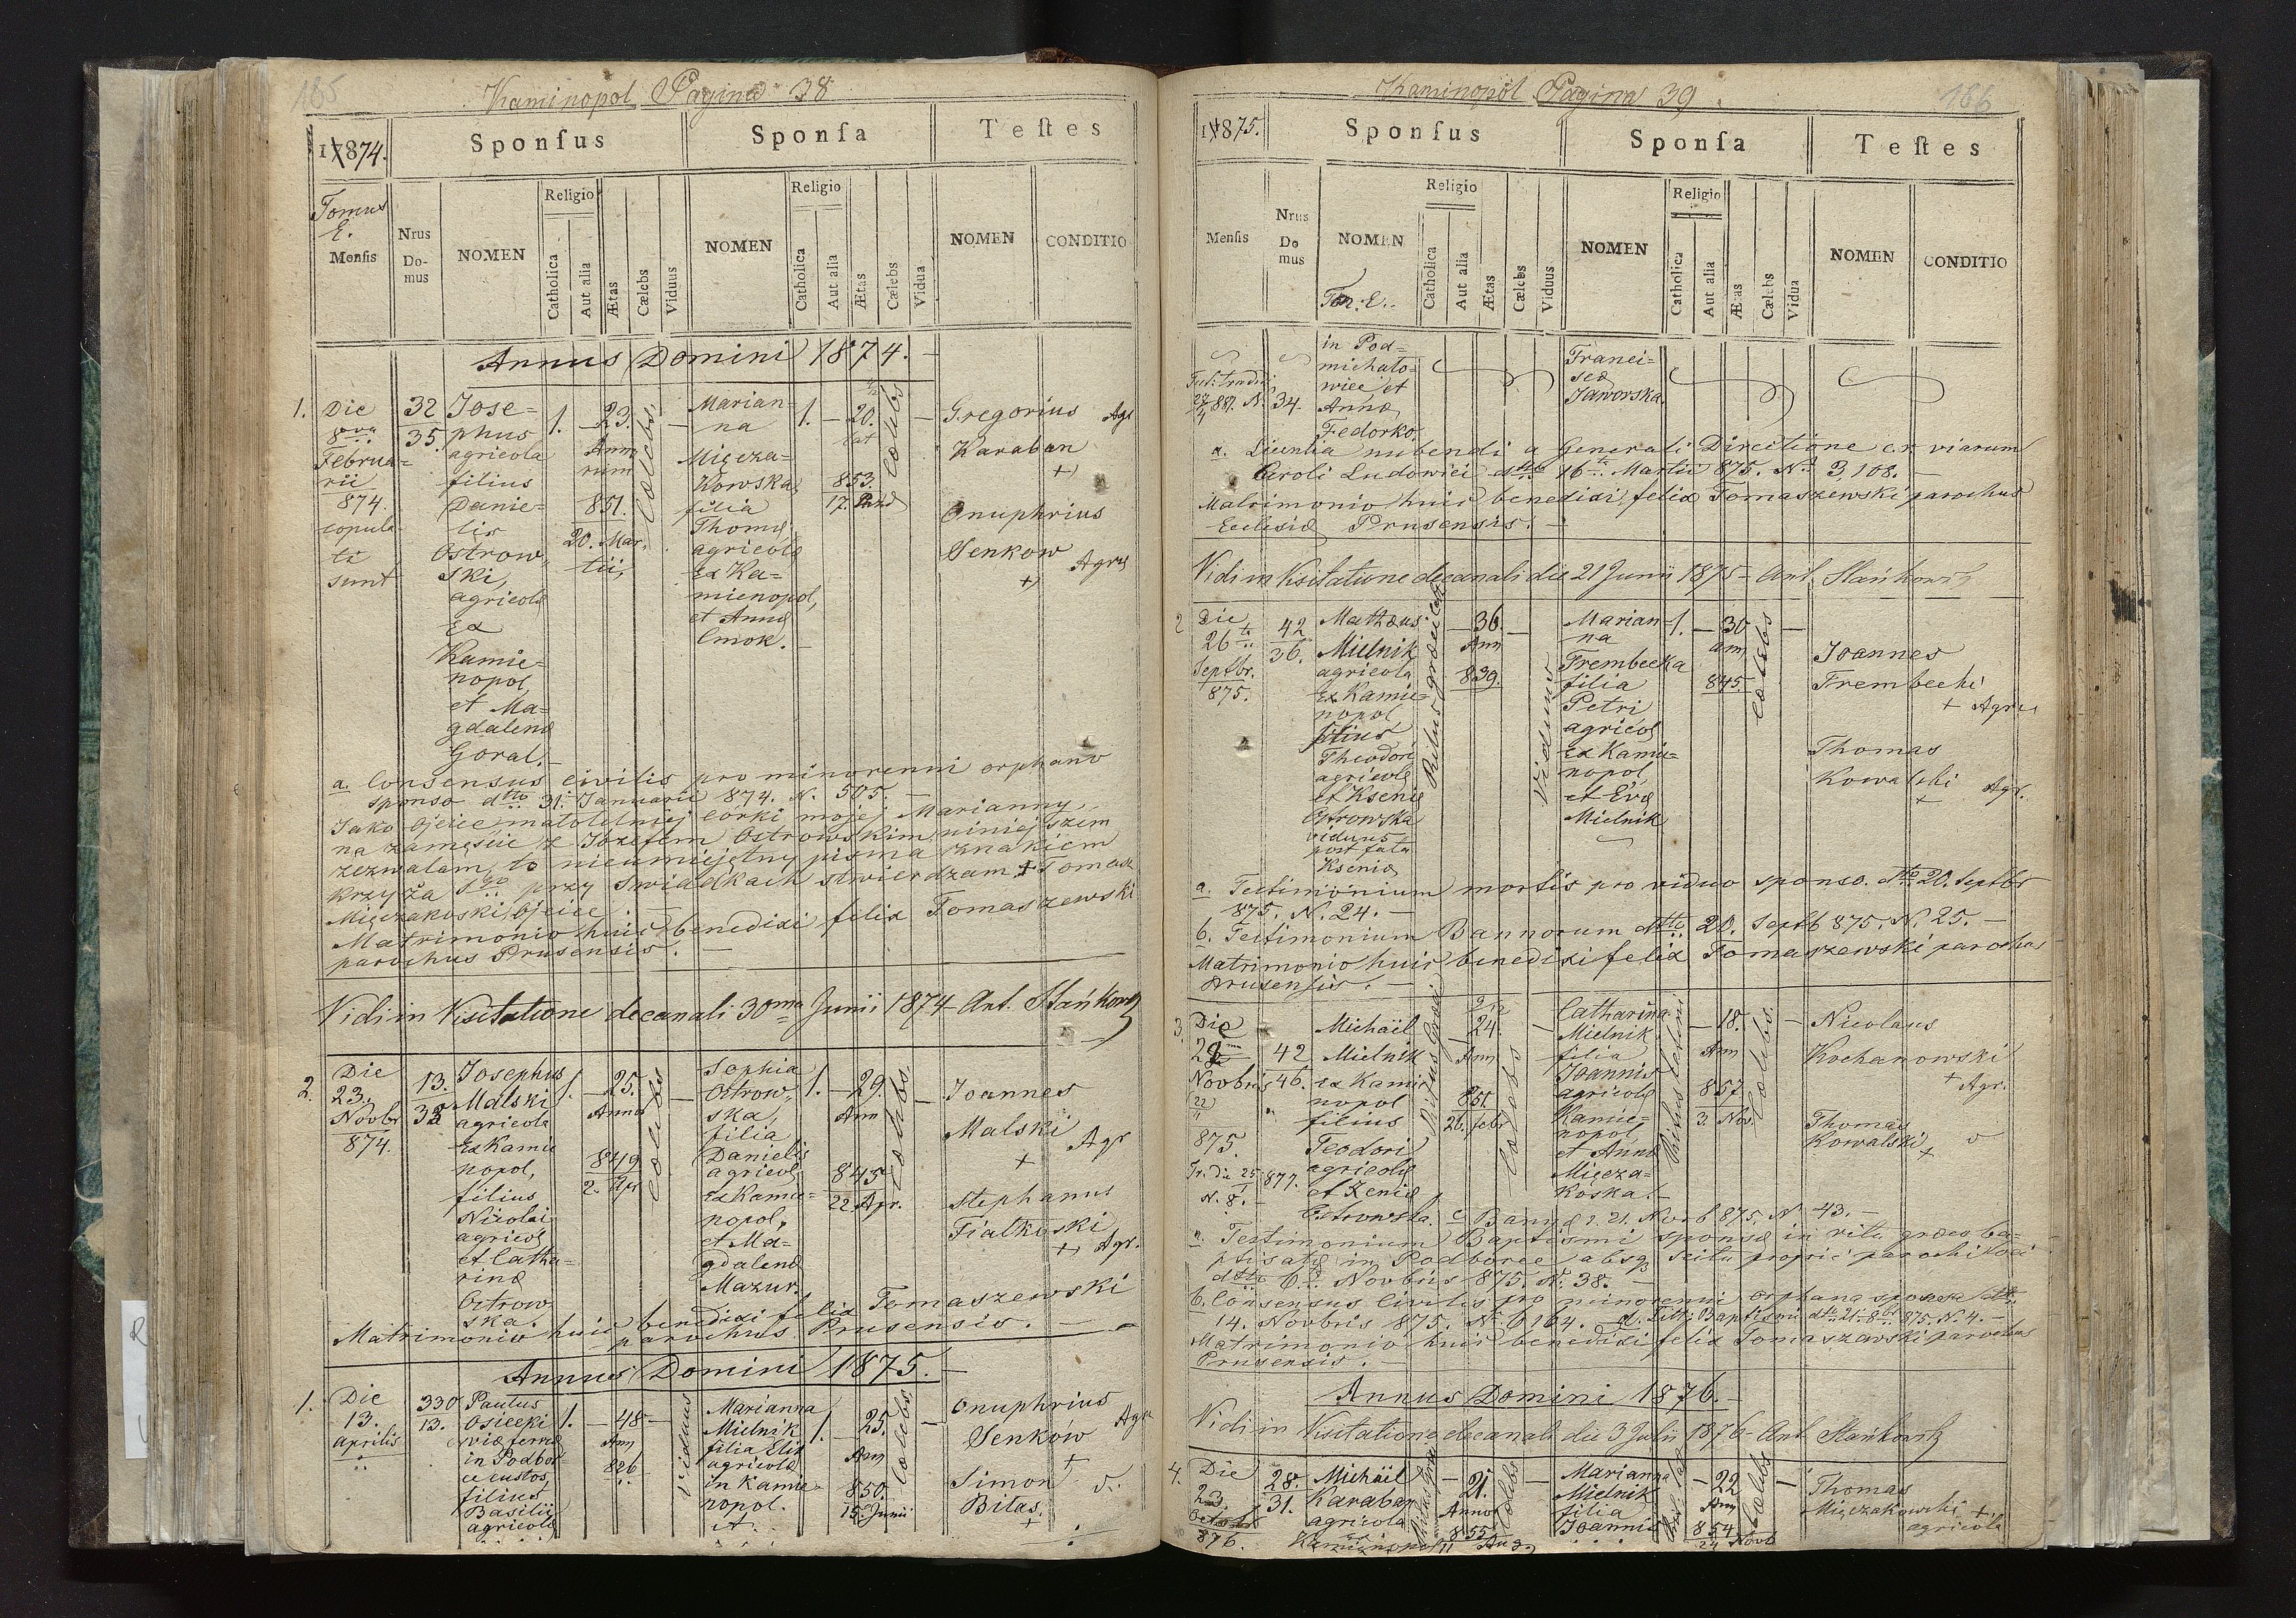 185
Kaminopol Pagina 38
17874.
Sponsus
Sponsa
Testes
Tomus
E.
Mensis
Nrus
Do-
mus
NOMEN
Religio
Catholica
Aut alia
Ætas
Cælebs
Viduus
NOMEN
Religio
Catholica
Aut alia
Ætas
Cælebs
Vidua
NOMEN
CONDITIO
Annus Domini 1874.
1.
Die
8va
Februa=
rii
874.
copula-
ti
sunt
32
35.
Jose=
phus
agricola
filius
Danie=
lis
Ostrow-
ski,
agricolæ
ex
Kamie=
nopol,
et Ma=
gdalenæ
Goral.
1.
23.
Anno
rum
851.
20. Mar-
tii,
Cœlebs.
Marian=
na
Mięcza=
kowska,
filia
Thomæ
agricolæ
ex Ka=
mienopol,
et Annæ
Cmok.
1.
20.
853.
17.
Cœlebs
Gregorius
Karaban
+
Agr
Onuphrius
Senkow
+
Agr
a. Consensus civilis pro minorenni orphano
sponso dtto 31. Januarii 874. N. 505.
Jako Ojciec małoletniej córki mojej Marianny,
na zamęście z Józefem Ostrowskim niniejszem
zezwalam, to nieumiejętny pisma znakiem
krzyża Sgo przy Swiadkach stwierdzam + Tomasz
Mięczakoski, Ojciec.
Matrimonio huic benedixi felix Tomaszewski
parochus Prusensis.
Vidi in Visitatione decanali 30ma Junii 1874 Ant. Stańkowski
2.
Die
23.
Novbr
874.
13.
38
Josephus
Malski
agricola
ex Kamie
nopol,
filius
Nicolai
agricolæ
et Catha=
rinæ
Ostrow
ska.
1.
25.
Annor
849
2. Apr
Cœlebs
Sophia
Ostrow-
ska,
filia
Danielis
agricolæ
ex Kamie=
nopol,
et Ma=
gdalenæ
Mazur.
1.
29.
Ann
845
22. Apr.
Cœlebs.
Joannes
Malski
+
Agr
Stephanus
Fiałkoski
+ Agr.
Matrimonio huic benedixi felix Tomaszewski
parochus Prusensis.
Annus Domini 1875.
1.
Die
13.
Aprilis
330
13.
Paulus
Osiecki
viæ ferreæ
in Podbor
ce custos,
filius
Basilii
agricolæ
1.
48
Ann
826
Viduus
Marianna
Mielnik
filia Eliæ
agricolæ
in Kamie=
nopol.
et
1.
25.
Ann
850.
15. Junii
Cœlebs.
Onuphrius
Senków
+
Agr
Simon
Bilas.
+
186
Kaminopol Pagina 39.
17875.
Sponsus
Sponsa
Testes
Mensis
Nrus
Do
mus
NOMEN
Tom. E.
Religio
Catholica
Aut alia
Ætas
Cælebs
Viduus
NOMEN
Religio
Catholica
Aut alia
Ætas
Cælebs
Vidua
NOMEN
CONDITIO
N. 34.
in Pod=
michało=
wiec et
Annæ
Fedorko.
Franci=
scæ
Jaworska.
a. Licentia nubendi a Generali Directione c.r. viarum
Caroli Ludovici dtto 16ta Martii 875. No 3,108.
Matrimonio huic benedixi, felix Tomaszewski parochus
Ecclesiæ Prusensis.
Vidi in Visitatione decanali die 21 Junii 1875 Ant. Stańkowski
2
Die
26ta
Septbr.
875.
42
36.
Mathæus
Mielnik
agricola
ex Kamie=
nopol
filius
Theodori
agricolæ
et Kseniæ
Ostrowska
viduus
post fata
Kseniæ
Ritus græci
36.
Ann
839.
Viduus
Marian
na
Trembecka
filia
Petri
agricolæ
ex Kamie=
nopol,
et Evæ
Mielnik
1.
30
ann
845.
Cœlebs
Joannes
Trembecki
+ Agr
Thomas
Kowalski
+
Agr.
a. Testimonium mortis pro viduo sponso. dtto 20. Septbr
875. N. 24.
b. Testimonium Bannorum dtto 20. Septb 875. N. 25.
Matrimonio huic benedixi felix Tomaszewski parochus
Prusensis.
3.
Die
Novbris
875.
42
46.
Michäel
Mielnik
ex Kamie
nopol
filius
Teodori
agricolæ
et Xeniæ
Ostrowska.
Ritus Græci
24.
Ann
851.
26. febr
Cœlebs
Catharina
Mielnik
filia
Joannis
agricolæ
Kamie=
nopol,
et Annæ
Mięcza=
koska.
Ritus Latini
18.
Ann
857.
3. Nov.
Cœlebs.
Nicolaus
Kochanowski
+ Agr.
Thomas
Kowalski
+
c. Banna d. 21. Novb 875. N. 43.
a. Testimonium Baptismi sponsæ in ritu græco ba=
ptisatæ in Podborce, absq scitu proprii parochi loci
dtto 6ta Novbris 875. N. 38.
b. Consensus Civilis pro minorenni orphana sponsa dtto
14. Novbris 875. N. 6164. d. Test. Baptismi dtto 21. 8br 875. N. 4.
Matrimonio huic benedixi felix Tomaszewski parochus
Prusensis.
Annus Domini 1876.
Vidi in Visitatione decanali die 3 Julii 1876 Ant Stańkowski
4.
Die
23.
Octobr
876.
28.
31.
Michäil
Karaban
agricola
ex
Kamienopol
21.
Annor
855
11 Aug.
Cœlebs
Marianna
Mielnik
filia
Joannis
22
Ann
854
24 Novb
Cœlebs
Thomas
Mięczakowski +
agricola